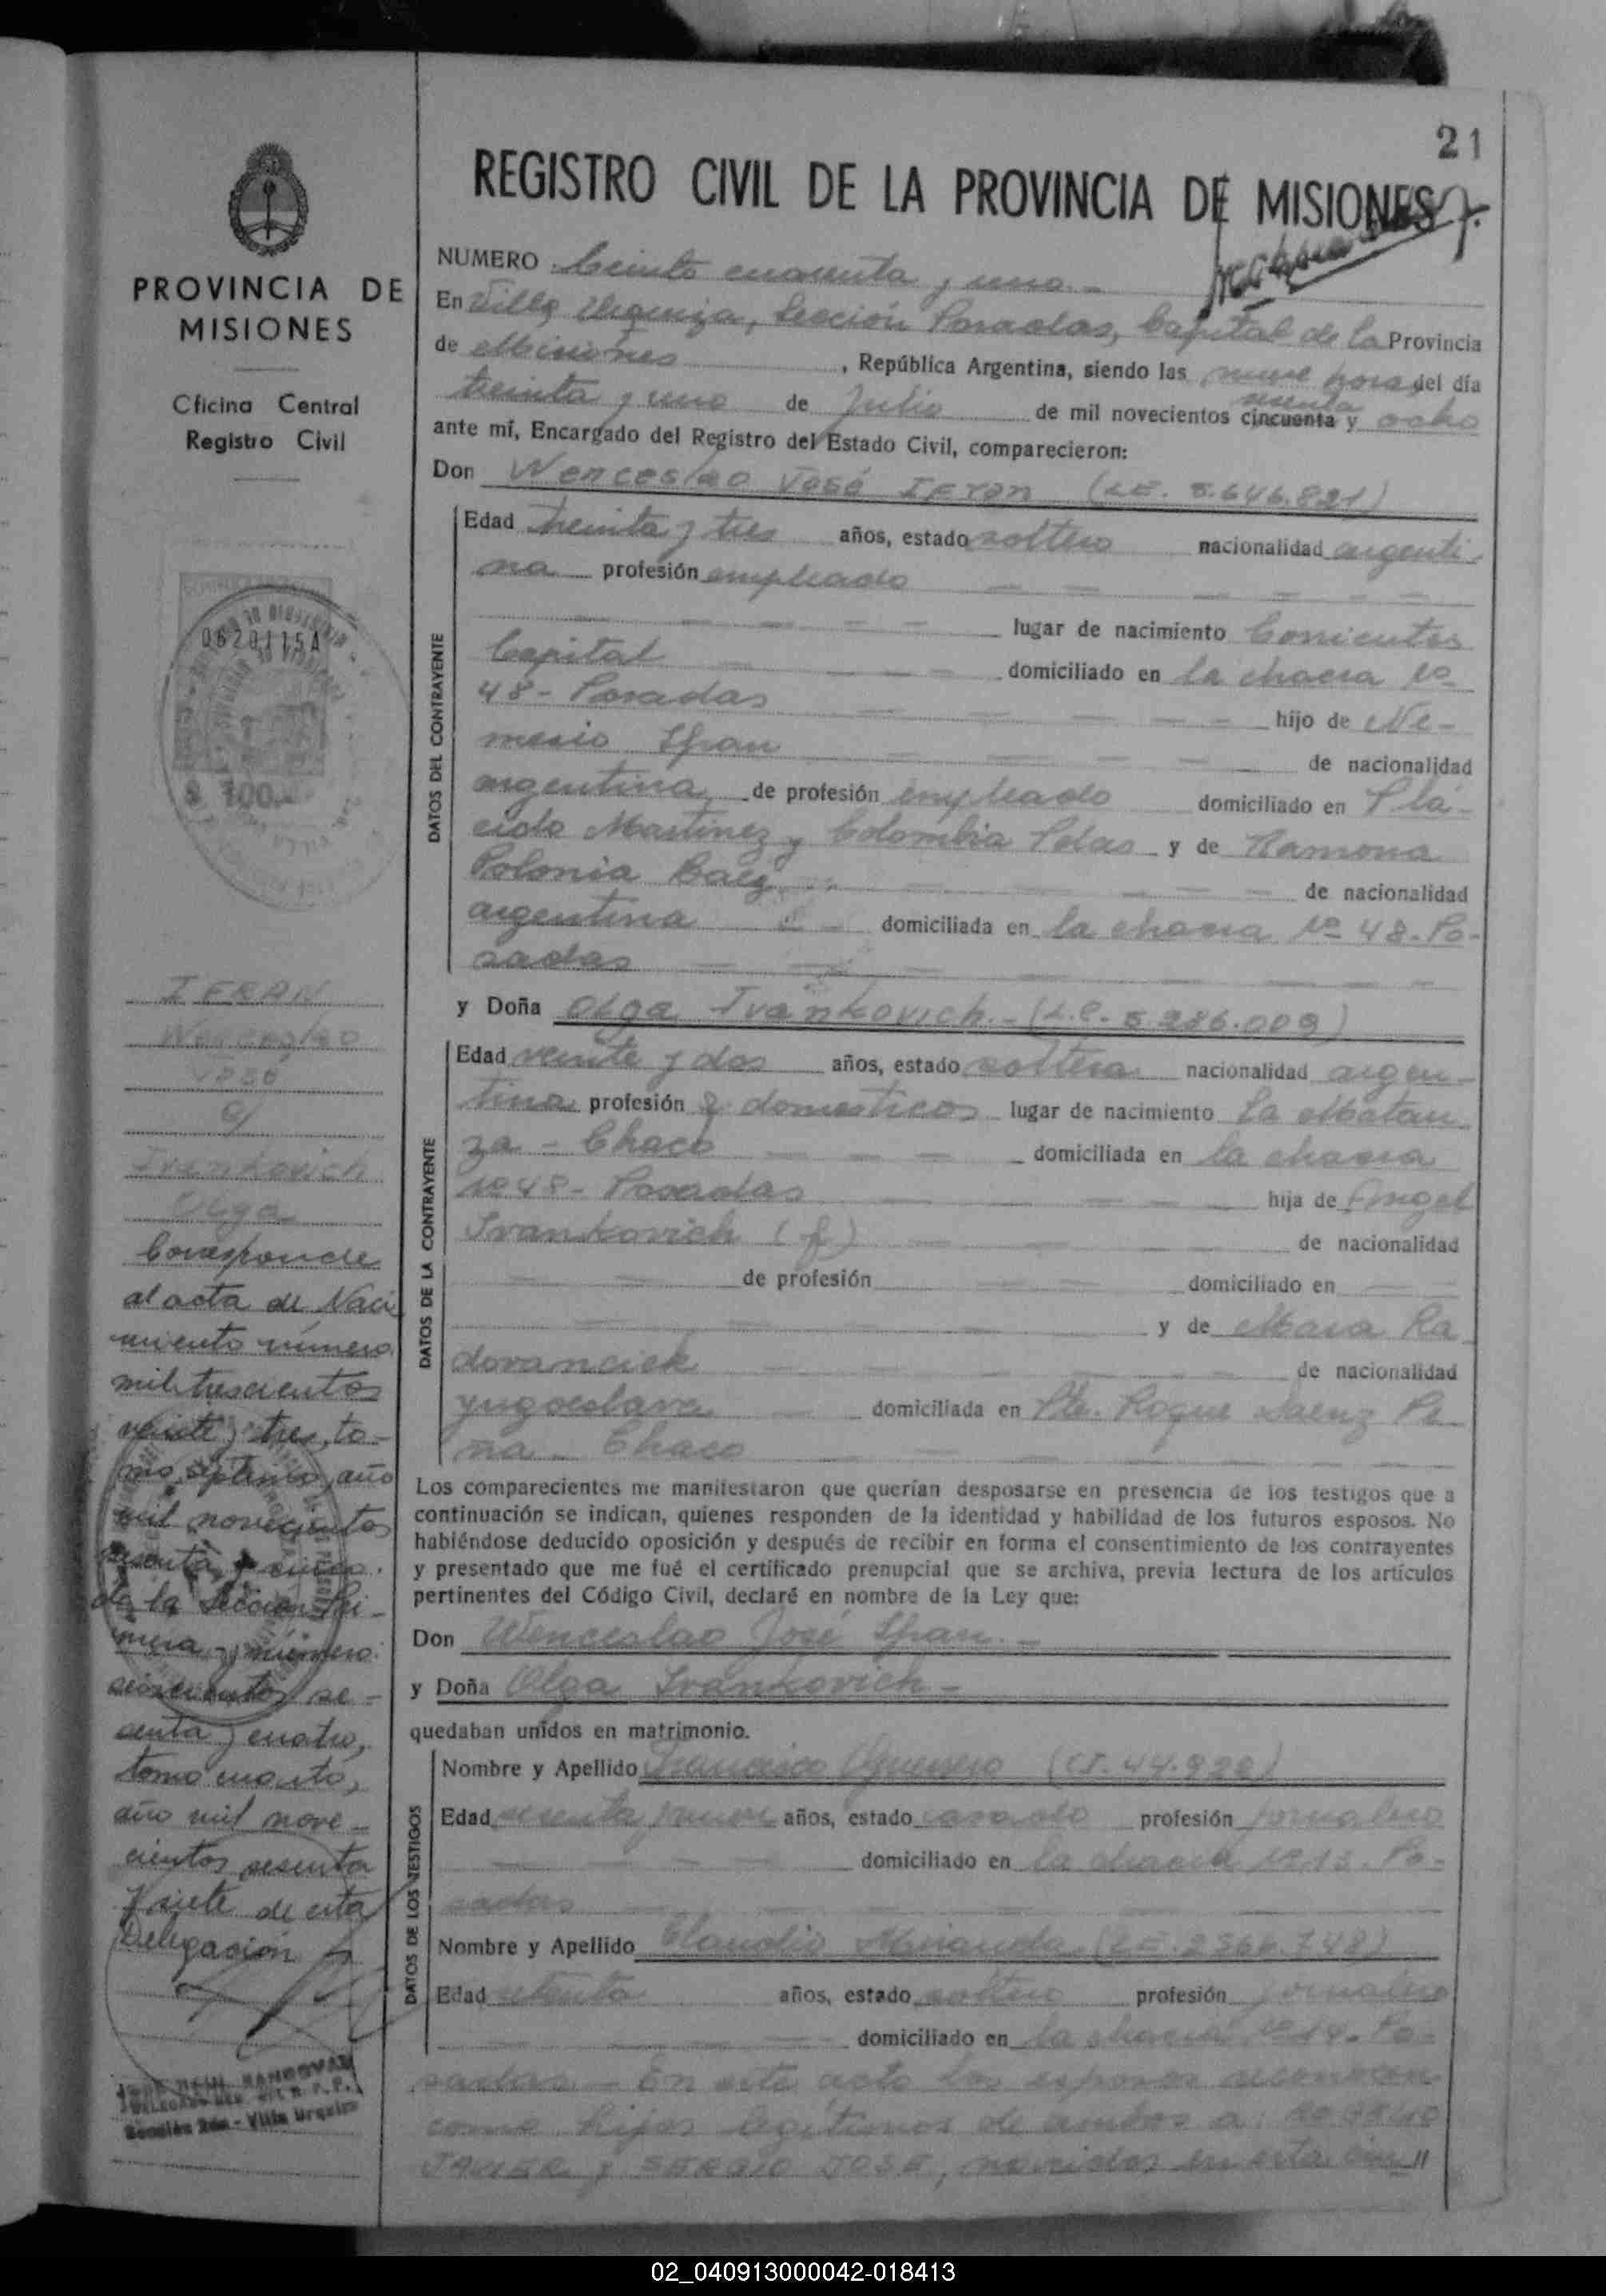 21
REGISTRO CIVIL DE LA PROVINCIA DE MISIONES
PROVINCIA DE
MISIONES
Oficina Central
Registro Civil
0620115A
$ 100.-
IFRAN
Wenceslao
José
c/
Ivankovich
Olga
Corresponde
al acta de Naci
miento número
mil trescientos
veinte y tres, to-
mo septimo, año
mil novecientos
sesenta y cinco
de la Sección Pri-
mera y número
seiscientos se-
senta y cuatro,
tomo cuarto,
año mil nove-
cientos sesenta
y siete de esta
Delegación
SANDOVAL
Sección 2da - Villa Urquiza
NUMERO Ciento cuarenta y uno -
En Villa Urquiza, Sección Posadas, Capital de la Provincia
de Misiones, República Argentina, siendo las nueve horas del día
treinta y uno de Julio de mil novecientos cincuenta y sesenta ocho
ante mí, Encargado del Registro del Estado Civil, comparecieron:
Don Wenceslao José IFran (LE. 5.646.821)
DATOS DEL CONTRAYENTE
Edad treinta y tres años, estado soltero nacionalidad argenti
na profesión empleado
lugar de nacimiento Corrientes
Capital domiciliado en la chacra Nº
48 - Posadas hijo de Ne-
mesio Ifran de nacionalidad
argentina de profesión empleado domiciliado en Plá-
cido Martinez y Colombia Pdas y de Ramona
Polonia Baez de nacionalidad
argentina domiciliada en la chacra Nº 48 - Po-
sadas
y Doña Olga Ivankovich - (L.C. 5.286.009)
DATOS DE LA CONTRAYENTE
Edad veinte y dos años, estado soltera nacionalidad argen-
tina profesión q. domesticos lugar de nacimiento La Matan
za - Chaco domiciliada en la chacra
Nº 48 - Posadas hija de Angel
Ivankovich (f) de nacionalidad
de profesión domiciliado en
y de Mara Ra
dovancick de nacionalidad
yugoeslava domiciliada en Pte. Roque Saenz Pe
ña - Chaco
Los comparecientes me manifestaron que querían desposarse en presencia de los testigos que a
continuación se indican, quienes responden de la identidad y habilidad de los futuros esposos. No
habiéndose deducido oposición y después de recibir en forma el consentimiento de los contrayentes
y presentado que me fué el certificado prenupcial que se archiva, previa lectura de los artículos
pertinentes del Código Civil, declaré en nombre de la Ley que:
Don Wenceslao José Ifran. -
y Doña Olga Ivankovich -
quedaban unidos en matrimonio.
DATOS DE LOS TESTIGOS
Nombre y Apellido Francisco Guerrero (CI. 44.922)
Edad sesenta y nueve años, estado casado profesión jornalero
domiciliado en la chacra Nº 13 - Po-
sadas
Nombre y Apellido Claudio Miranda (LE. 2.366.748)
Edad setenta años, estado soltero profesión jornalero
domiciliado en la chacra Nº 14 - Po-
sadas - En este acto los esposos reconocen
como hijos legítimos de ambos a: ROGELIO
JAVIER y SERGIO JOSE, nacidos en esta ciu//
02_040913000042-018413